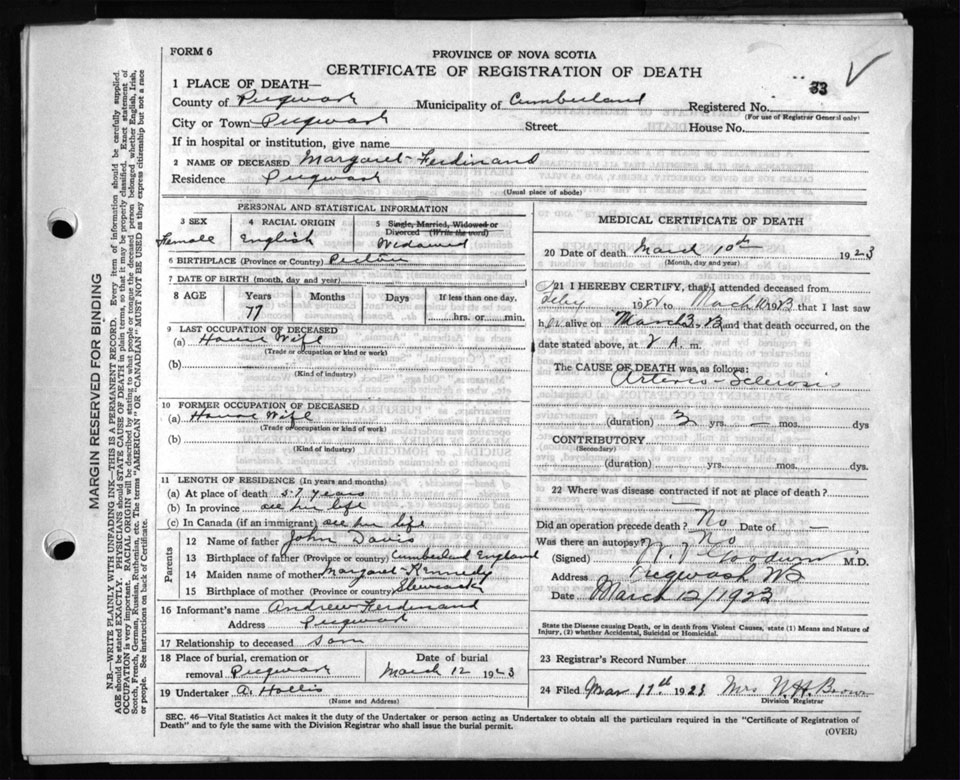 FORM 6
PROVINCE OF NOVA SCOTIA
CERTIFICATE OF REGISTRATION OF DEATH
33
1 PLACE OF DEATH—
County of Pugwash Municipality of Cumberland Registered No.
(For use of Registrar General only)
City or Town Pugwash Street House No.
If in hospital or institution, give name
2 NAME OF DECEASED Margaret Ferdinand
Residence Pugwash
(Usual place of abode)
PERSONAL AND STATISTICAL INFORMATION
3 SEX 4 RACIAL ORIGIN 5 Single, Married, Widowed or Divorced (Write the word)
Female English Widowed
6 BIRTHPLACE (Province or Country) Pictou
7 DATE OF BIRTH (month, day and year)
8 AGE Years Months Days If less than one day,
77 hrs. or min.
9 LAST OCCUPATION OF DECEASED
(a) House Wife
(Trade or occupation or kind or work)
(b)
(Kind of industry)
10 FORMER OCCUPATION OF DECEASED
(a) House Wife
(Trade or occupation or kind of work)
(b)
(Kind of industry)
11 LENGTH OF RESIDENCE (In years and months)
(a) At place of death 57 years
(b) In province all her life
(c) In Canada (if an immigrant) all her life
Parents
12 Name of father John Davis
13 Birthplace of father (Province or country) Cumberland England
14 Maiden name of mother Margaret Kennedy
15 Birthplace of mother (Province or country)
16 Informant's name Andrew Ferdinand
Address Pugwash
17 Relationship to deceased Son
18 Place of burial, cremation or removal Pugwash Date of burial March 12 1923
19 Undertaker A. Hollis
(Name and Address)
MEDICAL CERTIFICATE OF DEATH
20 Date of death March 10th 1923
(Month, day and year)
21 I HEREBY CERTIFY, that I attended deceased from
to March 10 1923 that I last saw
her alive on March 3 23 and that death occurred, on the
date stated above, at m.
The CAUSE OF DEATH was as follows:
Arterio-Sclerosis
(duration) 3 yrs. — mos. dys
CONTRIBUTORY
(Secondary)
(duration) yrs. mos. dys.
22 Where was disease contracted if not at place of death?
Did an operation precede death? No Date of —
Was there an autopsy? No
(Signed) Goodwin M.D.
Address Pugwash NS
Date March 12/1923
State the Disease causing Death, or in death from Violent Causes, state (1) Means and Nature of
Injury, (2) whether Accidental, Suicidal or Homicidal.
23 Registrar's Record Number
24 Filed Mar 17th 1923 Mrs N. H. Brown
Division Registrar
SEC. 46—Vital Statistics Act makes it the duty of the Undertaker or person acting as Undertaker to obtain all the particulars required in the "Certificate of Registration of
Death" and to fyle the same with the Division Registrar who shall issue the burial permit.
(OVER)
MARGIN RESERVED FOR BINDING
N.B.—WRITE PLAINLY WITH UNFADING INK—THIS IS A PERMANENT RECORD. Every item of information should be carefully supplied.
AGE should be stated EXACTLY. PHYSICIANS should STATE CAUSE OF DEATH in plain terms, so that it may be properly classified. Exact statement of
OCCUPATION is very important. RACIAL ORIGIN will be described by stating to what people or tongue the deceased person belonged whether English, Irish,
Scotch, French, German, Russian, Ruthenian, etc. The terms "AMERICAN" OR "CANADIAN" MUST NOT BE USED as they express citizenship but not a race
or people. See instructions on back of Certificate.